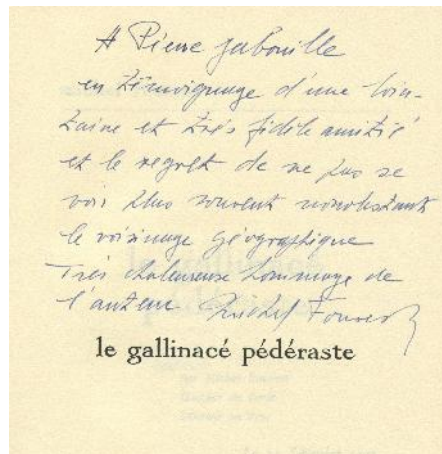 A Pierre Jabouille
en témoignage d'une loin-
taine et très fidèle amitié
et le regret de ne pas se
voir plus souvent nonobstant
le voisinage géographique
Très chaleureuse hommage de
l'auteur Michel
le gallinacé pédéraste